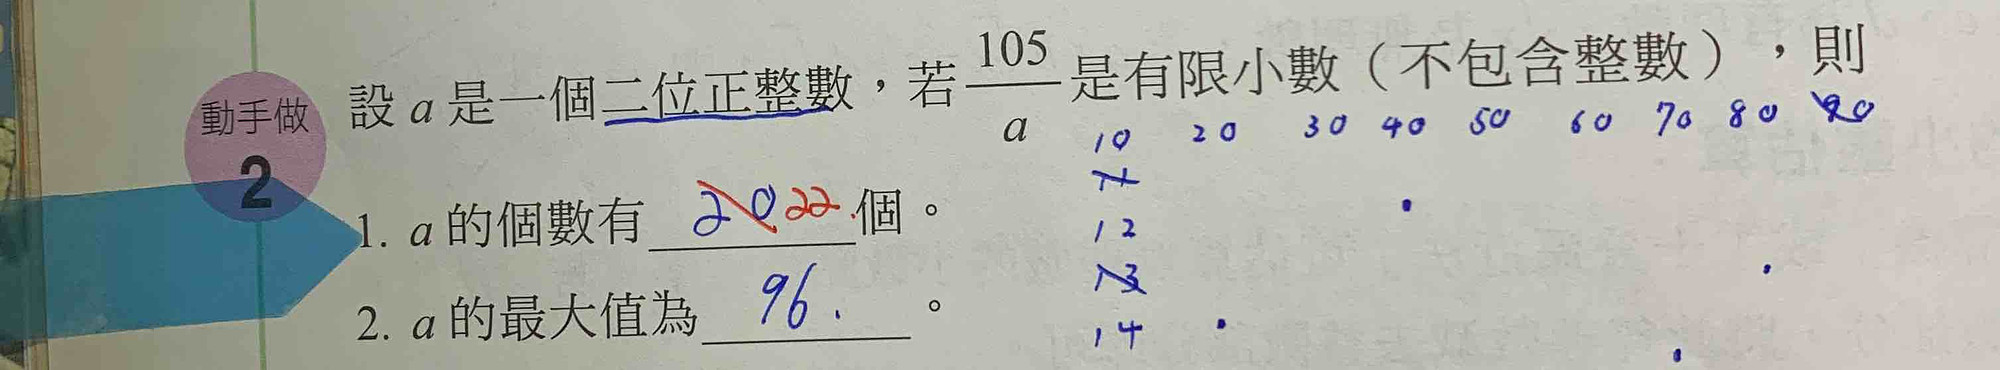 動手做
2
設 a 是一個二位正整數，若 105/a 是有限小數（不包含整數），則
10 20 30 40 50 60 70 80 90
11
1. a 的個數有 20 22 個。
12
13
2. a 的最大值為 96. 。
14